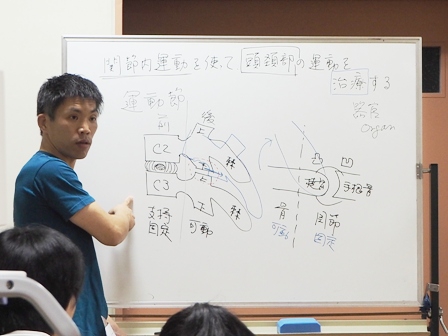 関節内運動を使って 頭頚部の運動を
治療する
器官
organ
運動節
前 後
上
C2
棘
C3
下
棘
支持
固定
可動
凸 凹
骨
可動
関節
固定